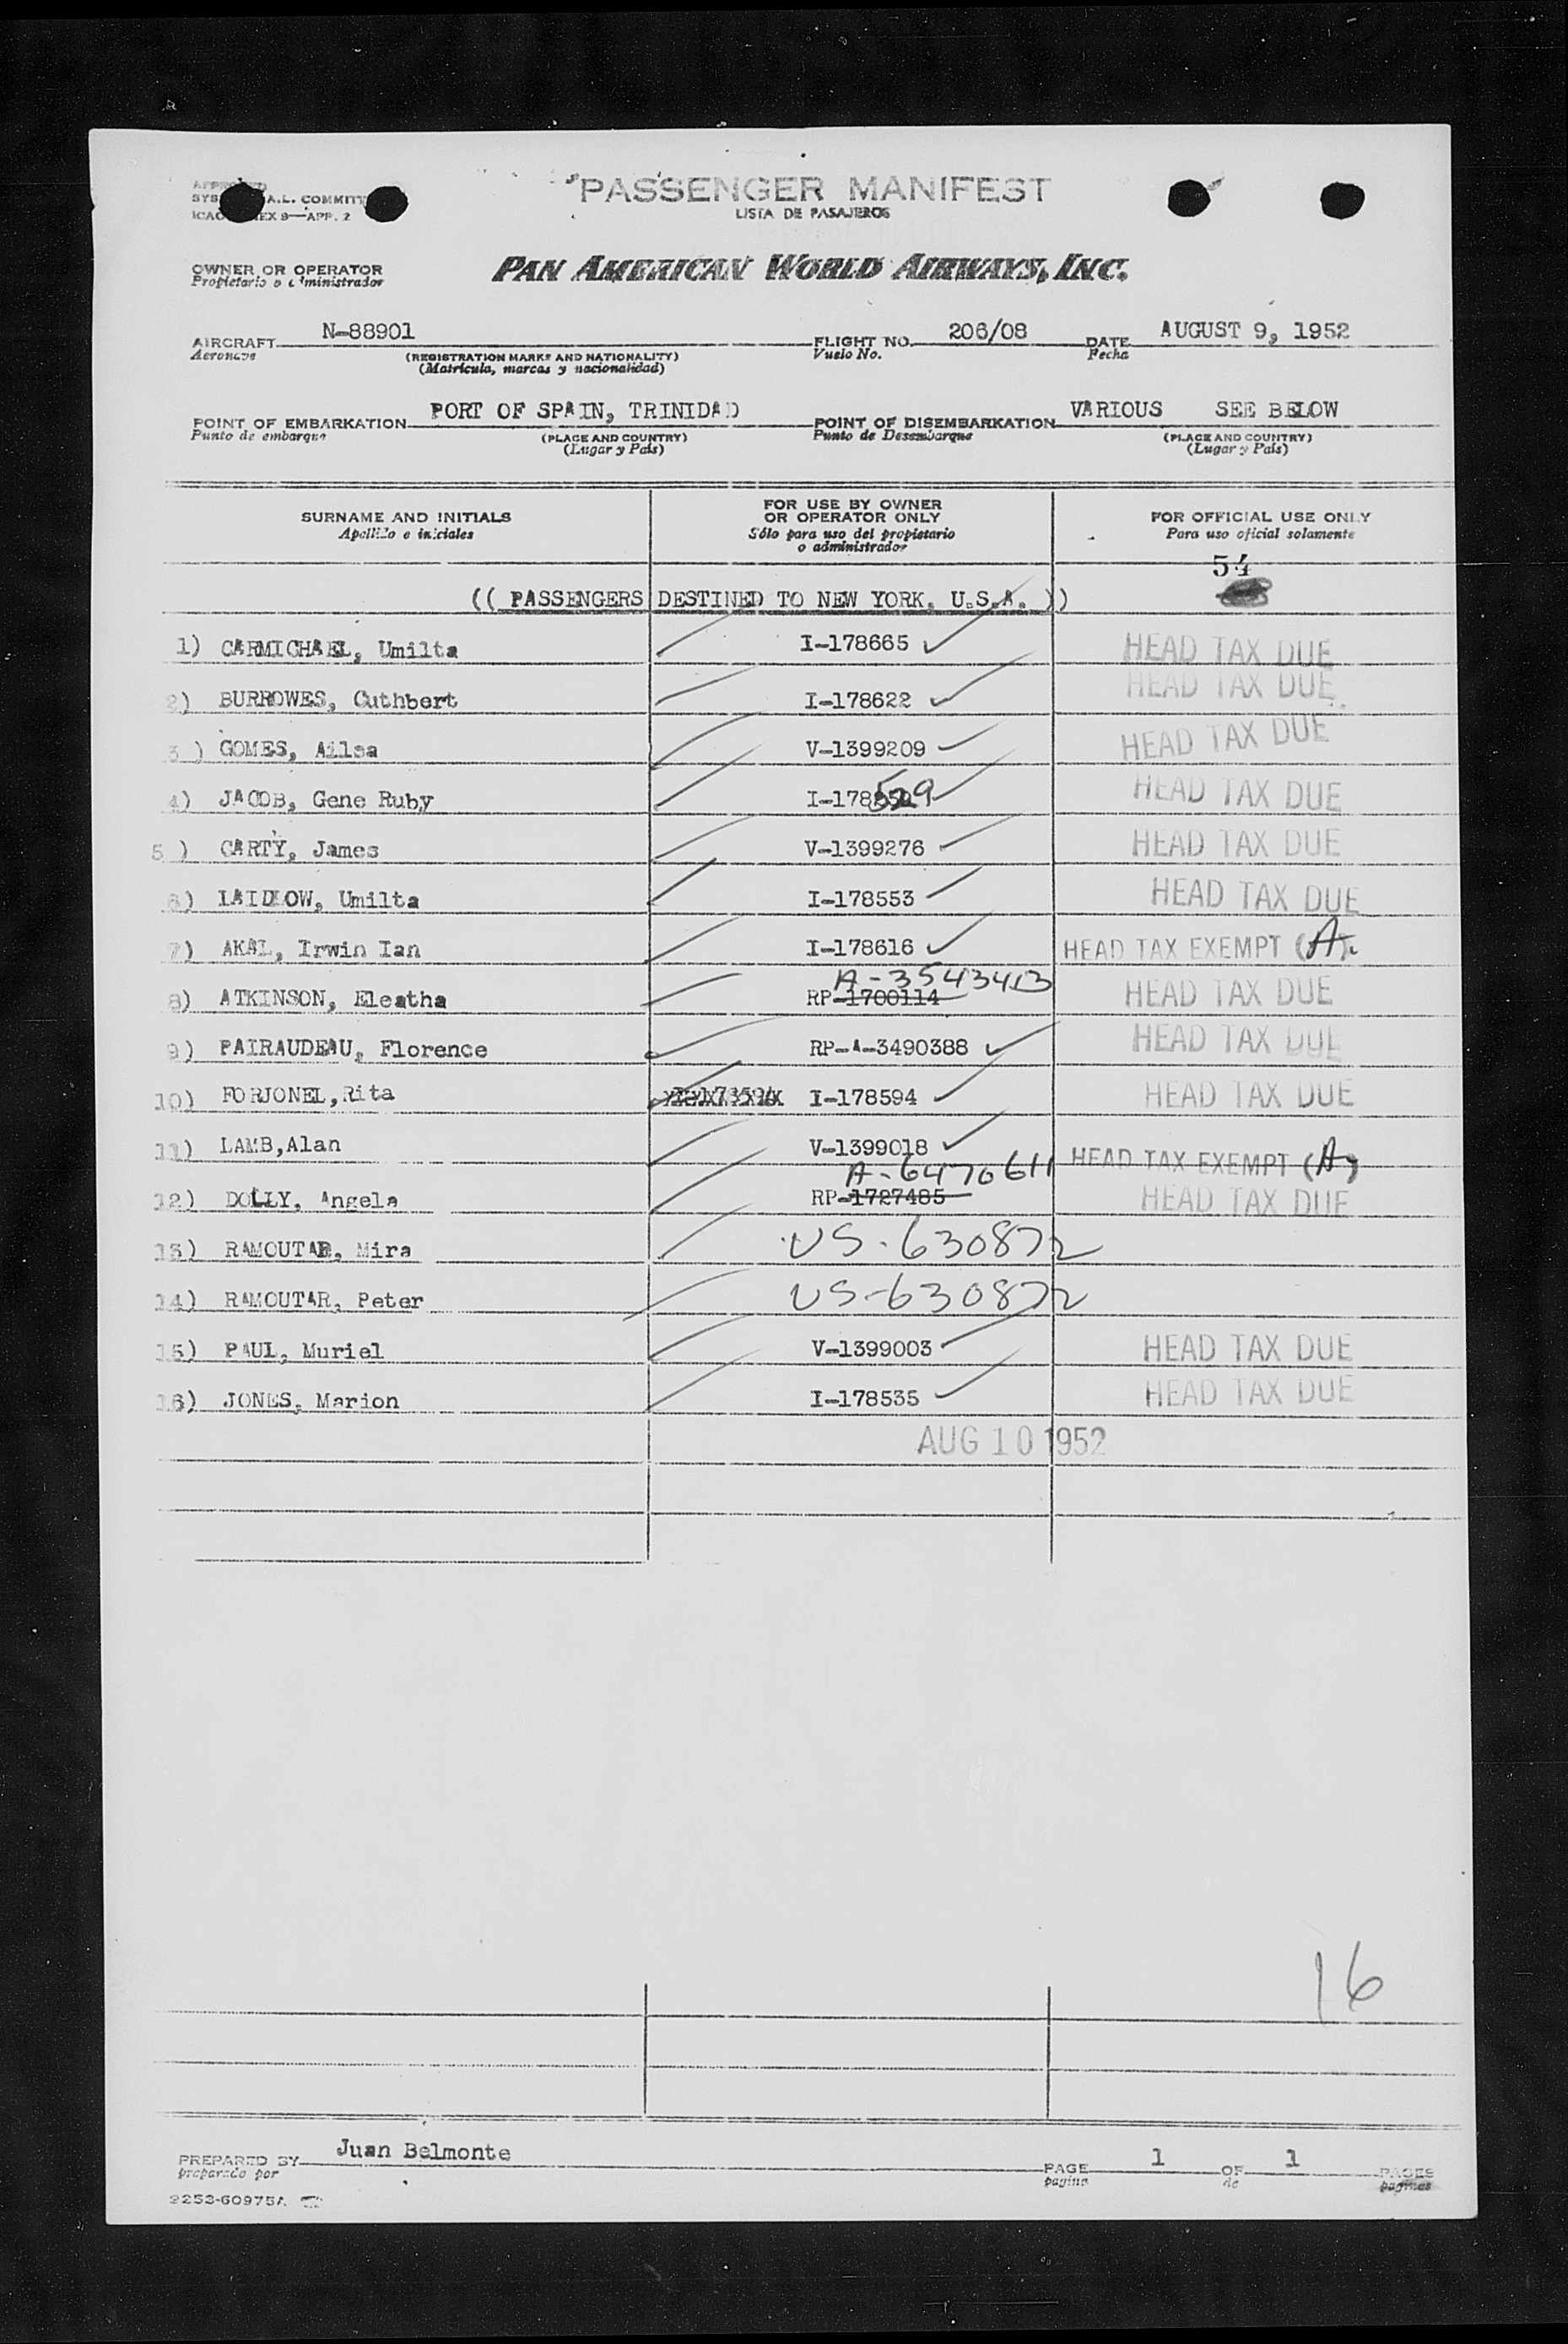 PASSENGER MANIFEST
LISTA DE PASAJEROS
A.L. COMMITT
ICAO EX 9—APP. 2
OWNER OR OPERATOR
Propietario o administrador
PAN AMERICAN WORLD AIRWAYS, INC.
AIRCRAFT N-88901 FLIGHT NO. 206/08 DATE AUGUST 9, 1952
Aeronave (REGISTRATION MARKS AND NATIONALITY) Vuelo No. Fecha
(Matrícula, marcas y nacionalidad)
POINT OF EMBARKATION PORT OF SPAIN, TRINIDAD POINT OF DISEMBARKATION VARIOUS SEE BELOW
Punto de embarque (PLACE AND COUNTRY) Punto de Desembarque (PLACE AND COUNTRY)
(Lugar y País) (Lugar y País)
SURNAME AND INITIALS FOR USE BY OWNER OR OPERATOR ONLY FOR OFFICIAL USE ONLY
Apellido e iniciales Sólo para uso del propietario o administrador Para uso oficial solamente
54
(( PASSENGERS DESTINED TO NEW YORK. U.S.A. ))
1) CARMICHAEL, Umilta I-178665 HEAD TAX DUE
2) BURROWES, Cuthbert I-178622 HEAD TAX DUE
3 ) GOMES, Ailsa V-1399209 HEAD TAX DUE
4) JACOB, Gene Ruby I-178529 HEAD TAX DUE
5 ) CARTY, James V-1399276 HEAD TAX DUE
6) LAIDLOW, Umilta I-178553 HEAD TAX DUE
7) AKAL, Irwin Ian I-178616 HEAD TAX EXEMPT (A).
A-3543413
8) ATKINSON, Eleatha RP-1700114 HEAD TAX DUE
9) PAIRAUDEAU, Florence RP-A-3490388 HEAD TAX DUE
10) FORJONEL,Rita I-178594 HEAD TAX DUE
11) LAMB,Alan V-1399018 HEAD TAX EXEMPT (A)
A-6470611
12) DOLLY, Angela RP-1727485 HEAD TAX DUE
13) RAMOUTAR, Mira US-630872
14) RAMOUTAR, Peter US-630872
15) PAUL, Muriel V-1399003 HEAD TAX DUE
16) JONES, Marion I-178535 HEAD TAX DUE
AUG 10 1952
16
PREPARED BY Juan Belmonte PAGE 1 OF 1 PAGES
preparado por pagina de paginas
9253-60975A